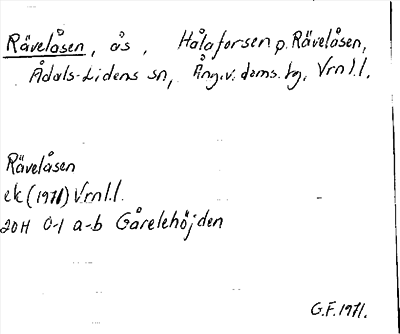 Rävelåsen, ås, Hålaforsen p. Rävelåsen,
Ådals-Lidens sn, Ång. v. doms. tg, Vrnl.l.
Rävelåsen
ek (1971) Vrnl.l.
20H 0-1 a-b Gårelehöjden
G.F. 1971.